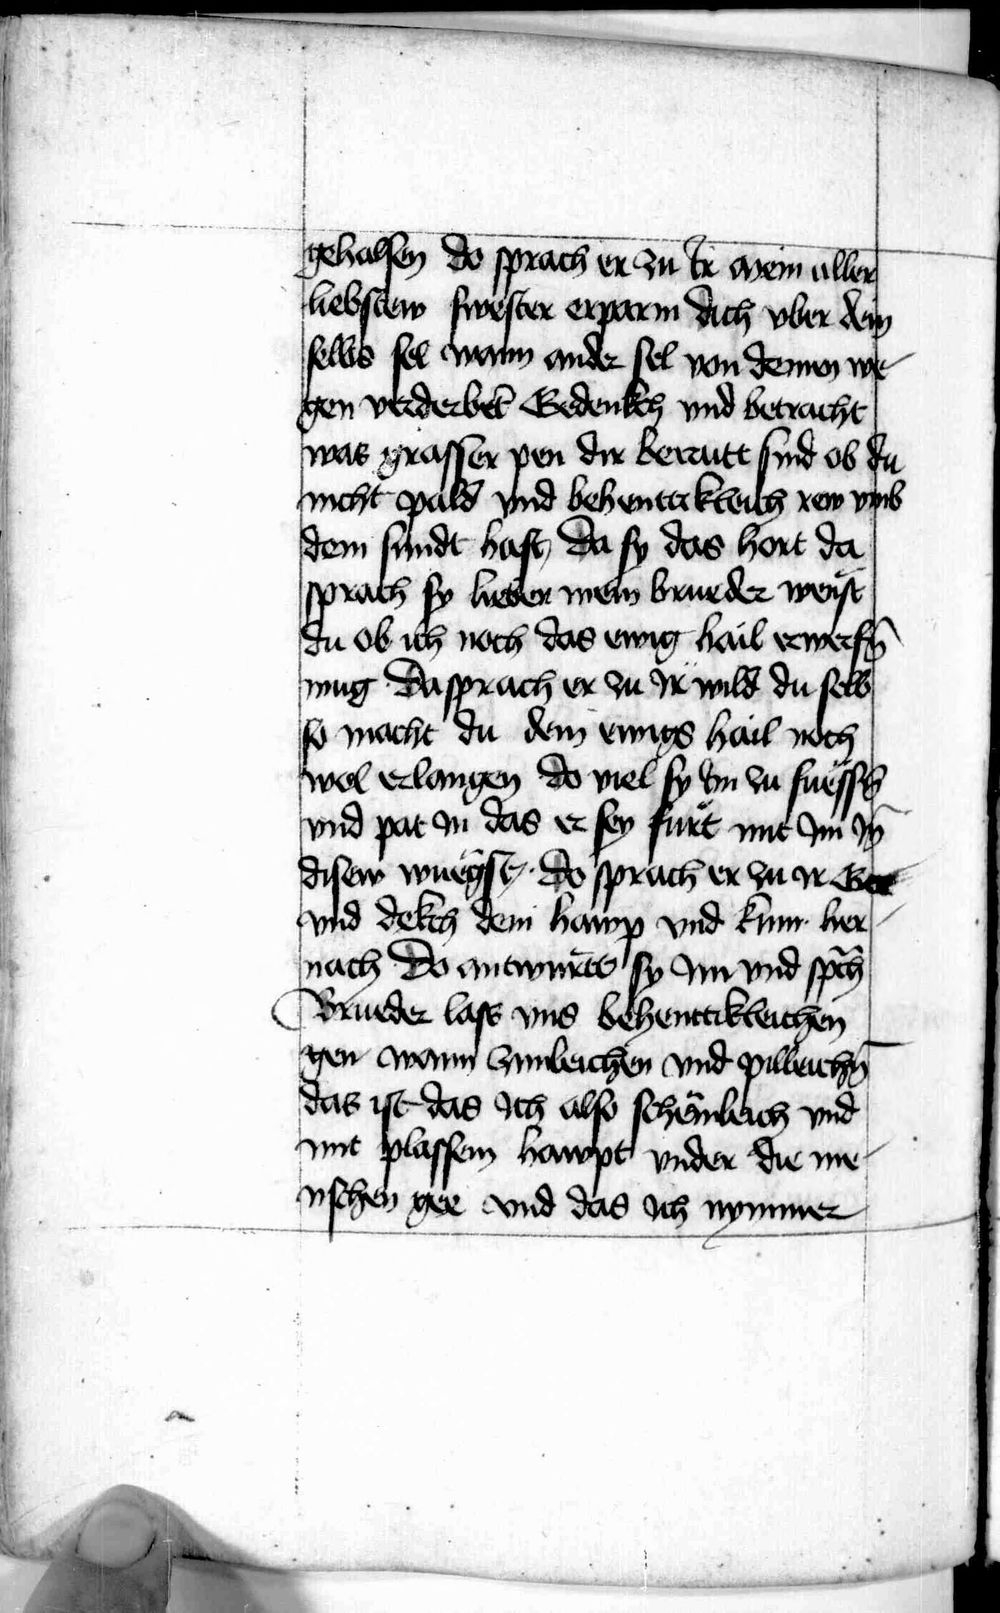 gehalsen do sprach er zu Ir Mein aller
liebstew swester erparm dich vber dein
selbs sel wann ander sel von deinen we-
gen verderbet Gedenkch vnd betracht
was grasser pen dir beraitt sind ob du
nicht pald vnd behenttikleich rew vmb
dein sundt hast Da sy das hort da
sprach sy lieber mein brueder waist
du ob ich noch das ewig hail erwerfn̄
mug Da sprach er zu Ir wild du selb
so macht du dein ewigs hail noch
wol erlangen do viel sy Im zu fuëssn̄
vnd pat In das er sey furt mit Im Jn̄
disew wuëgst Do sprach er zu Ir Gee
vnd dekch dein hawp vnd kum her
nach Do antwurtt sy Im vnd sp̄ch
Brueder lass vns behenttikleichen
gen wann zimleichen vnd pilleichn̄
das ist das Ich also schëmleich vnd
mit plassem hawpt vnder die me-
nschen gee vnd das Ich nymmer